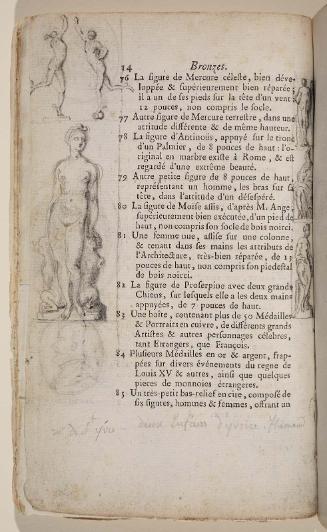 14 Bronzes.
76 La figure de Mercure céleste, bien déve-
loppée & supérieurement bien réparée;
il a un de ses pieds sur la tête d'un vent
12 pouces, non compris le socle.
77 Autre figure de Mercure terrestre, dans une
attitude différente & de même hauteur.
78 La figure d'Antinoüs, appuyé sur le tronc
d'un Palmier, de 8 pouces de haut: l'o-
riginal en marbre existe à Rome, & est
regardé d'une extrême beauté.
79 Autre petite figure de 8 pouces de haut,
représentant un homme, les bras sur sa
tête, dans l'attitude d'un désespéré.
80 La figure de Moïse assis, d'après M. Ange,
supérieurement bien exécutée, d'un pied de
haut, non compris son socle de bois noirci.
81 Une femme nue, assise sur une colonne,
& tenant dans ses mains les attributs de
l'Architecture, très-bien réparée, de 13
pouces de haut, non compris son piédestal
de bois noirci.
82 La figure de Proserpine avec deux grands
Chiens, sur lesquels elle a les deux mains
appuyées, de 7 pouces de haut.
83 Une boîte, contenant plus de 50 Médailles
& Portraits en cuivre, de différents grands
Artistes & autres personnages célebres,
tant Etrangers, que François.
84 Plusieurs Médailles en or & argent, frap-
pées sur divers événements du regne de
Louis XV & autres, ainsi que quelques
pieces de monnoies étrangeres.
85 Un très-petit bas-relief en cire, composé de
six figures, hommes & femmes, offrant un
deux Enfans d'yvoire flamand